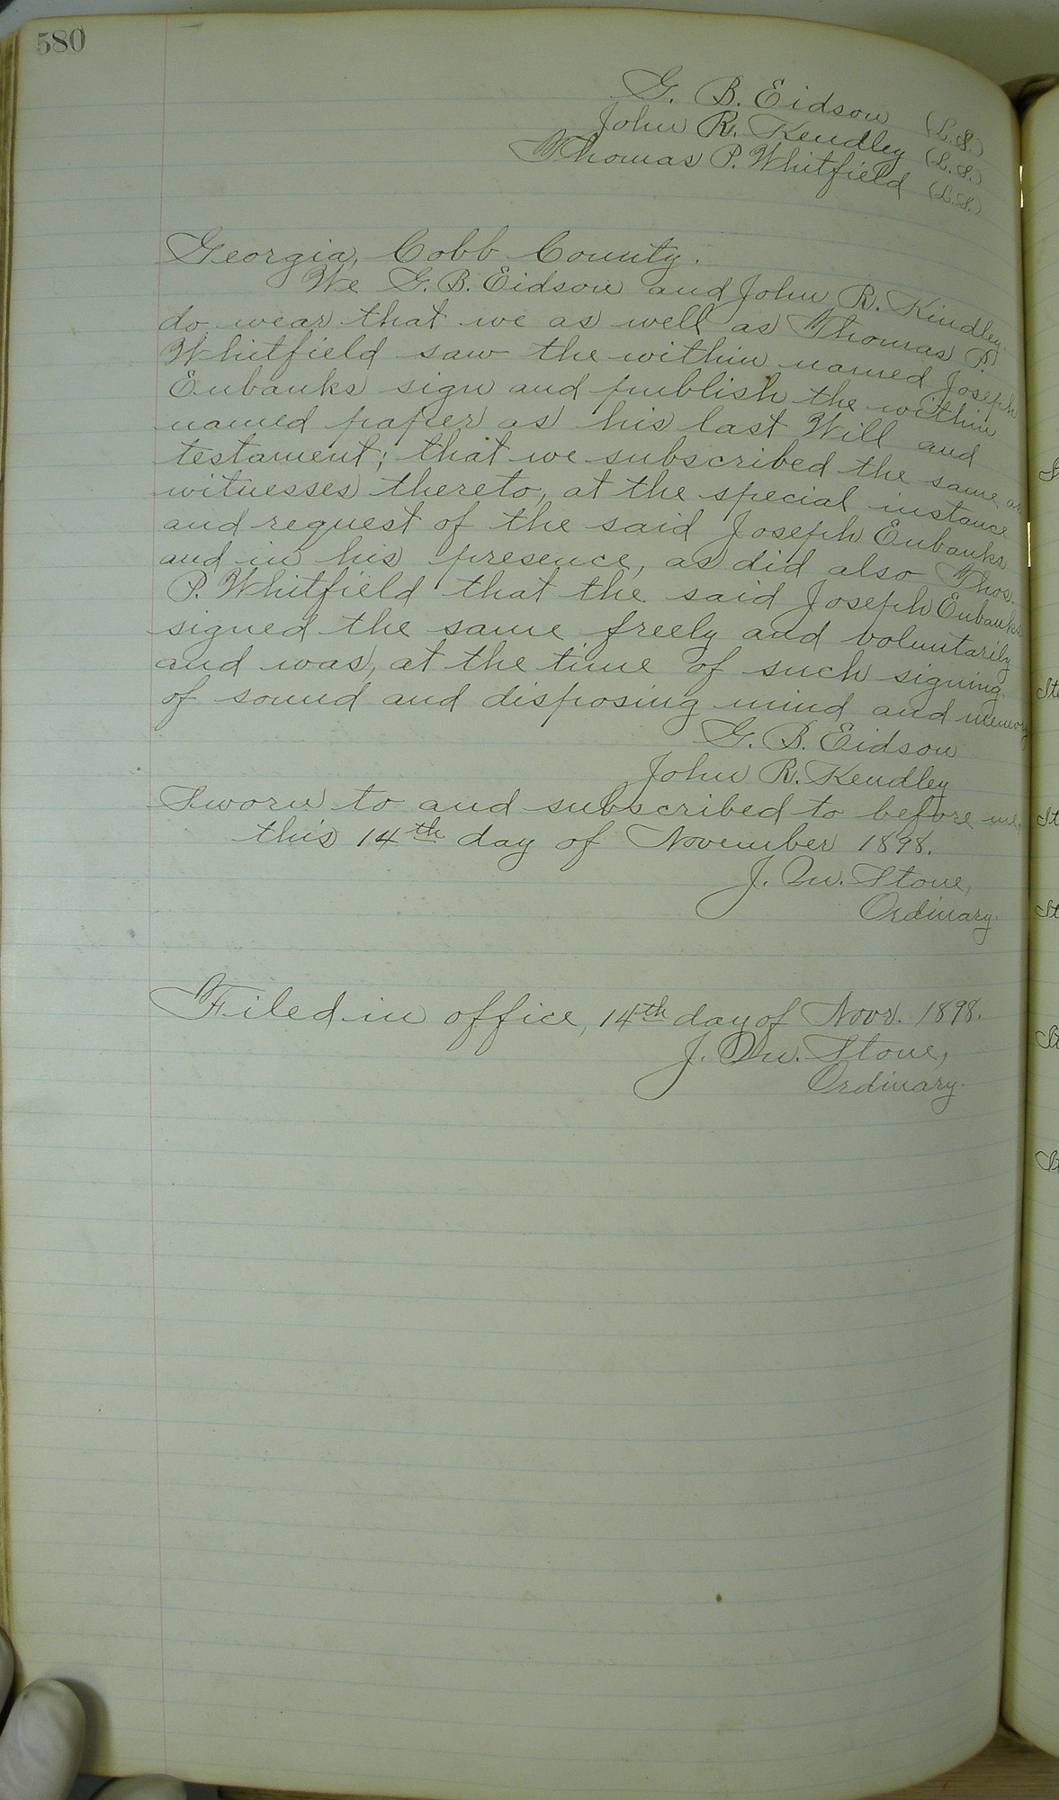 580
G. B. Eidson (L.S.)
John R. Kendley (L.S.)
Thomas P. Whitfield (L.S.)
Georgia, Cobb County.
We G. B. Eidson and John R. Kindley
do wear that we as well as Thomas P.
Whitfield saw the within named Joseph
Eubanks sign and publish the within
named paper as his last Will and
testament; that we subscribed the same as
witnesses thereto, at the special instance
and request of the said Joseph Eubanks
and in his presence, as did also Thos.
P. Whitfield that the said Joseph Eubanks
signed the same freely and voluntarily
and was, at the time of such signing
of sound and disposing mind and memory
G. B. Eidson
John R. Kendley
Sworn to and subscribed to before me
this 14th day of November 1898.
J. M. Stone,
Ordinary.
Filed in office, 14th day of Novr. 1898.
J. M. Stone,
Ordinary.